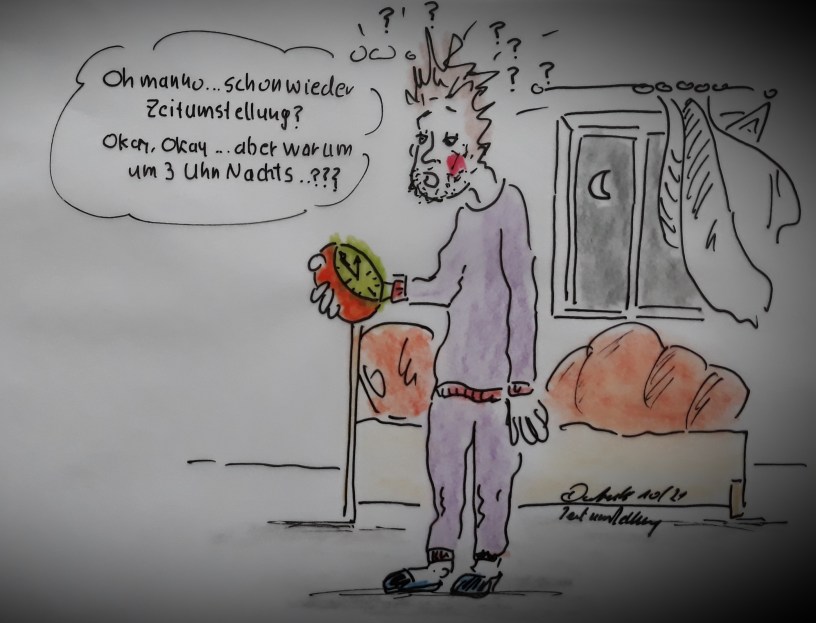 ? ? ? ? ? ?
Oh manno...schon wieder
Zeitumstellung?
Okay, Okay...aber warum
um 3 Uhr Nachts..???
10/21
Zeitumstellung